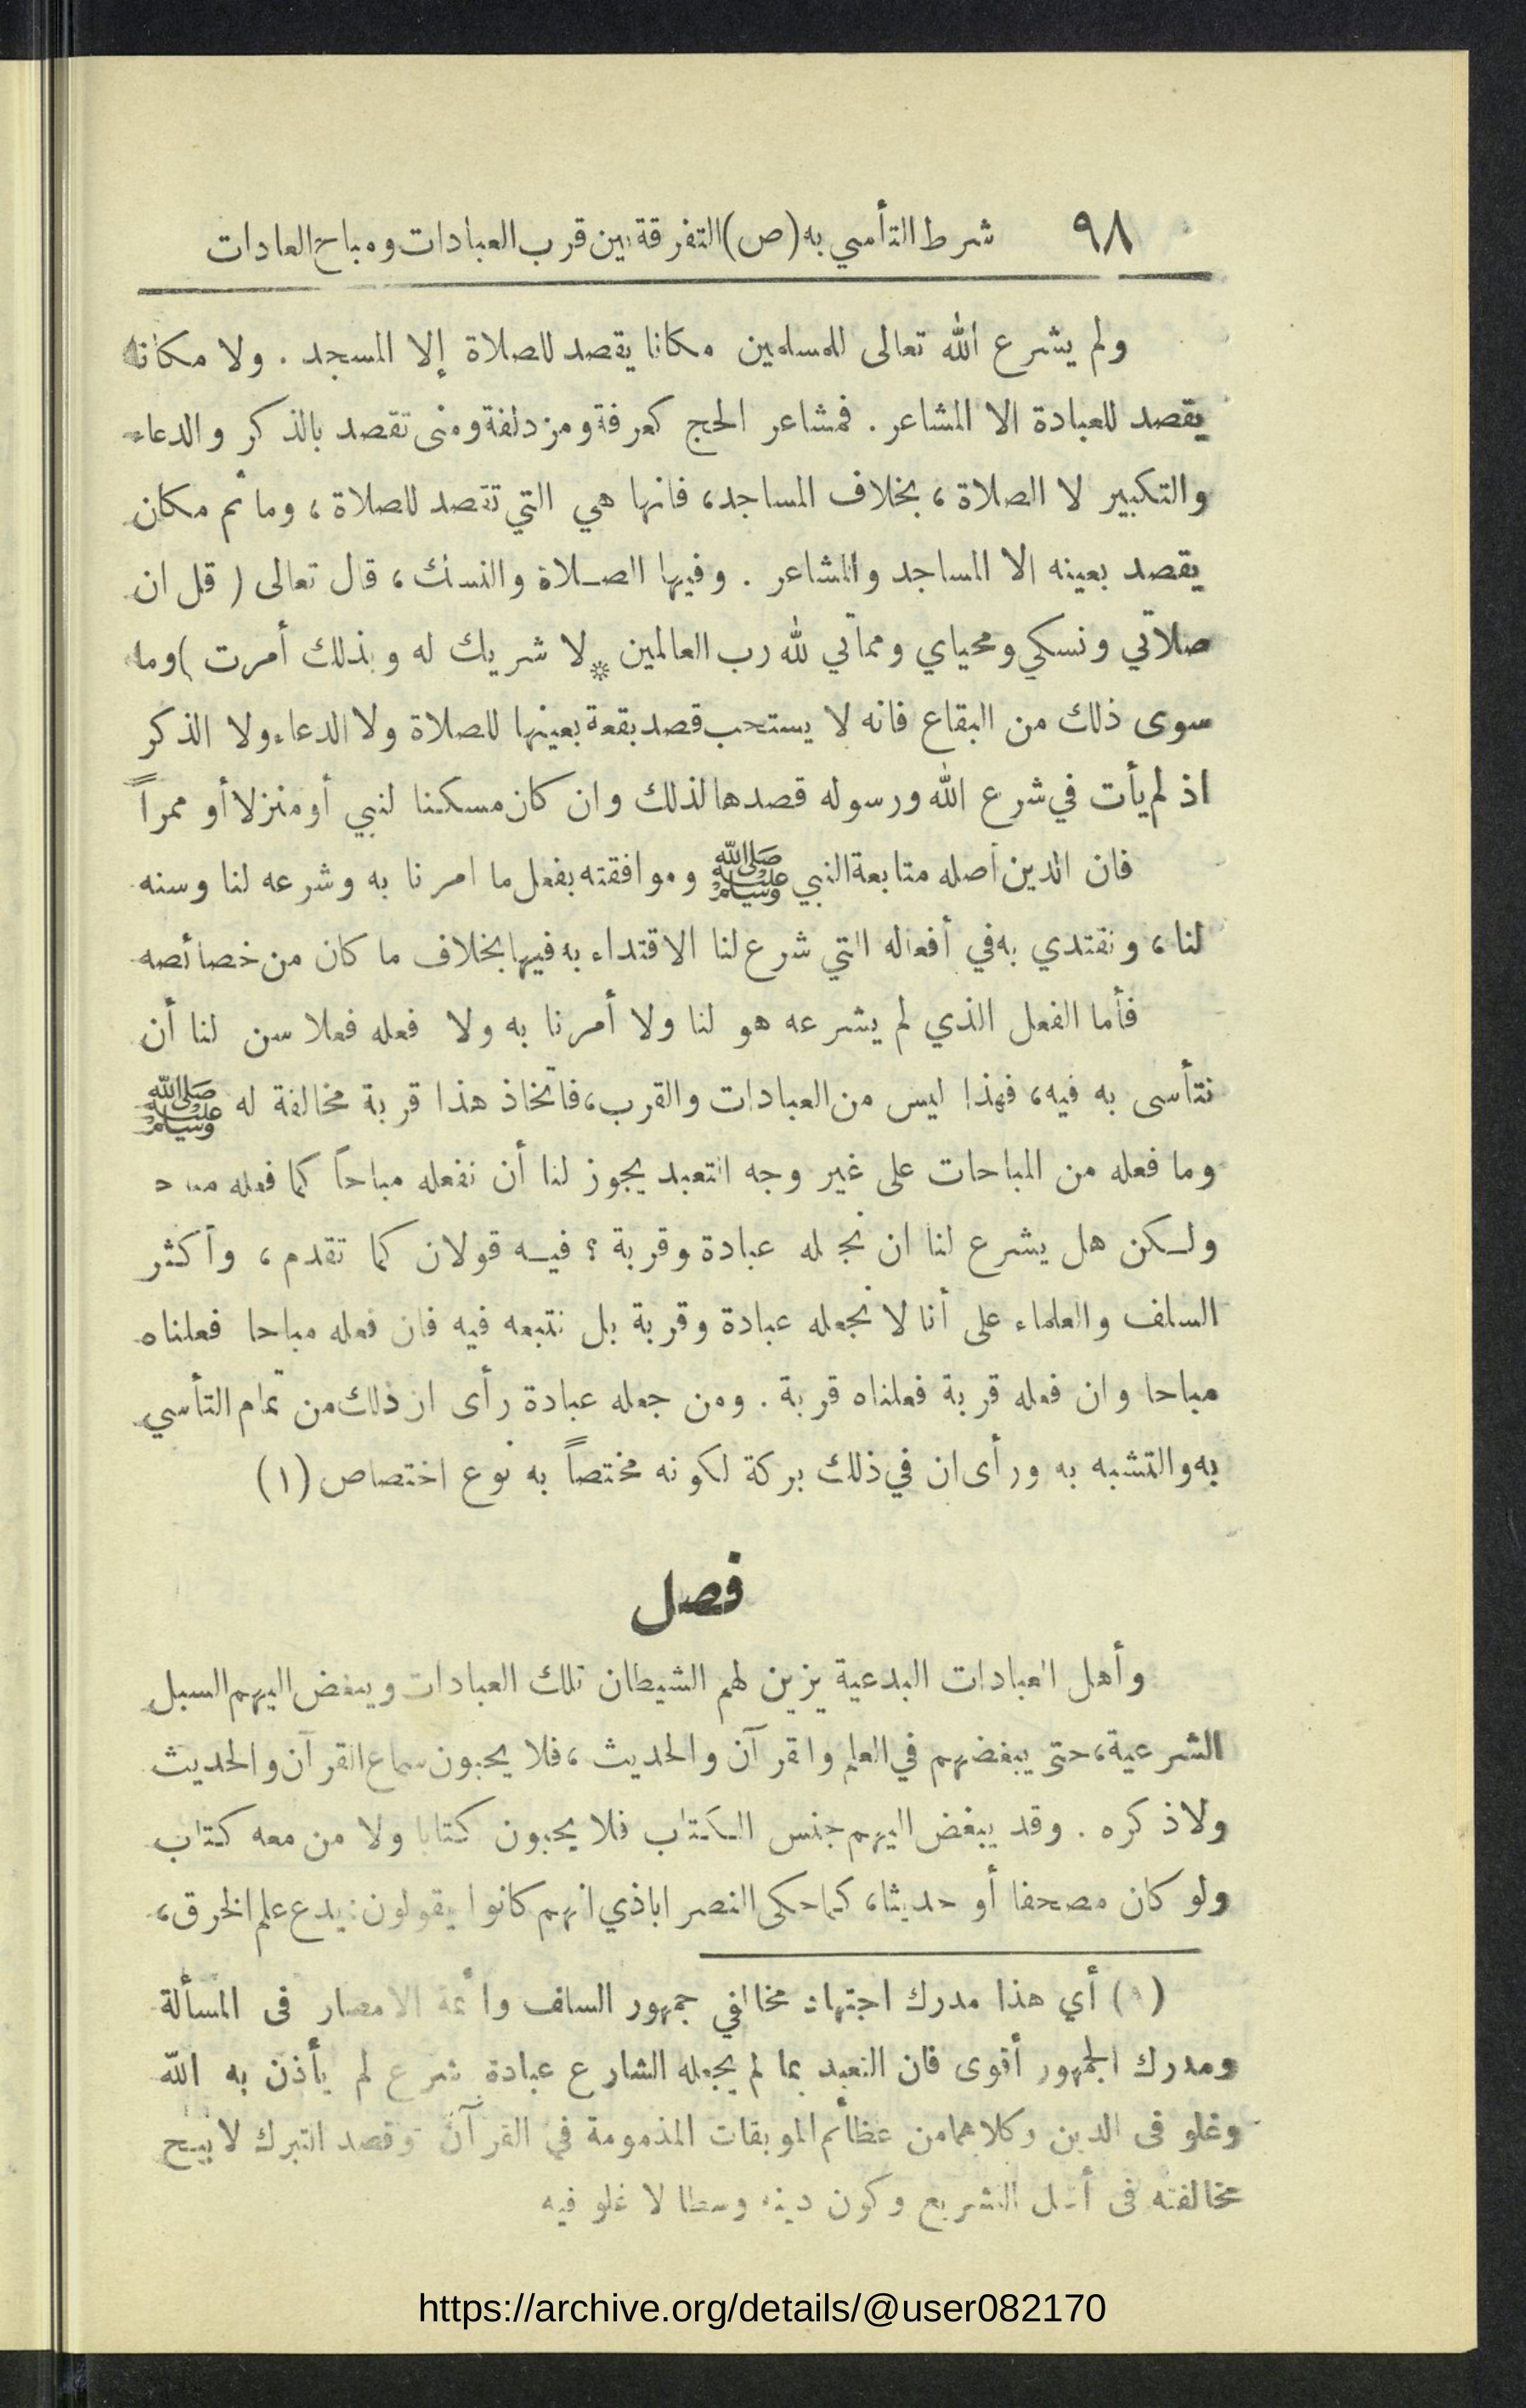 ٩٨ شرط التأسي به (ص) التفرقة بين قرب العبادات ومباح العادات
ولم يشرع الله تعالى للمسلمين مكانا يقصد للصلاة إلا المسجد . ولا مكانا
يقصد للعبادة الا المشاعر . فمشاعر الحج كعرفة ومزدلفة ومنى تقصد بالذكر والدعاء
والتكبير لا الصلاة ، بخلاف المساجد، فانها هي التي تقصد للصلاة ، وما ثم مكان
يقصد بعينه الا المساجد والمشاعر . وفيها الصلاة والنسك ، قال تعالى ( قل ان
صلاتي ونسكي ومحياي ومماتي لله رب العالمين * لا شريك له وبذلك أمرت ) وما
سوى ذلك من البقاع فانه لا يستحب قصد بقعة بعينها للصلاة ولا الدعاء ولا الذكر
اذ لم يأت في شرع الله ورسوله قصدها لذلك وان كان مسكنا لنبي أو منزلا أو ممراً
فان الدين أصله متابعة النبي ﷺ وموافقته بفعل ما امرنا به وشرعه لنا وسنه
لنا ، ونقتدي به في أفعاله التي شرع لنا الاقتداء به فيها بخلاف ما كان من خصائصه
فأما الفعل الذي لم يشرعه هو لنا ولا أمرنا به ولا فعله فعلا سن لنا أن
نتأسى به فيه، فهذا ليس من العبادات والقرب، فاتخاذ هذا قربة مخالفة له ﷺ
وما فعله من المباحات على غير وجه التعبد يجوز لنا أن نفعله مباحاً كما فعله
ولكن هل يشرع لنا ان نجعله عبادة وقربة ؟ فيه قولان كما تقدم ، وأكثر
السلف والعلماء على أنا لا نجعله عبادة وقربة بل نتبعه فيه فان فعله مباحا فعلناه
مباحا وان فعله قربة فعلناه قربة . ومن جعله عبادة رأى ان ذلك من تمام التأسي
به والتشبه به ورأى ان في ذلك بركة لكونه مختصاً به نوع اختصاص (١)
فصل
وأهل العبادات البدعية يزين لهم الشيطان تلك العبادات ويبغض اليهم السبل
الشرعية، حتى يبغضهم في العلم والقرآن والحديث ، فلا يحبون سماع القرآن والحديث
ولا ذكره . وقد يبغض اليهم جنس الكتاب فلا يحبون كتابا ولا من معه كتاب
ولو كان مصحفا أو حديثا، كما حكى النصراباذي انهم كانوا يقولون: يدع علم الخرق،
(١) أي هذا مدرك اجتهاد مخالفي جمهور السلف وائمة الامصار فى المسألة
ومدرك الجمهور أقوى فان التعبد بما لم يجعله الشارع عبادة شرع لم يأذن به الله
وغلو فى الدين وكلاهما من عظائم الموبقات المذمومة في القرآن وقصد التبرك لا يبيح
مخالفته فى أصل التشريع وكون دينه وسطا لا غلو فيه
https://archive.org/details/@user082170